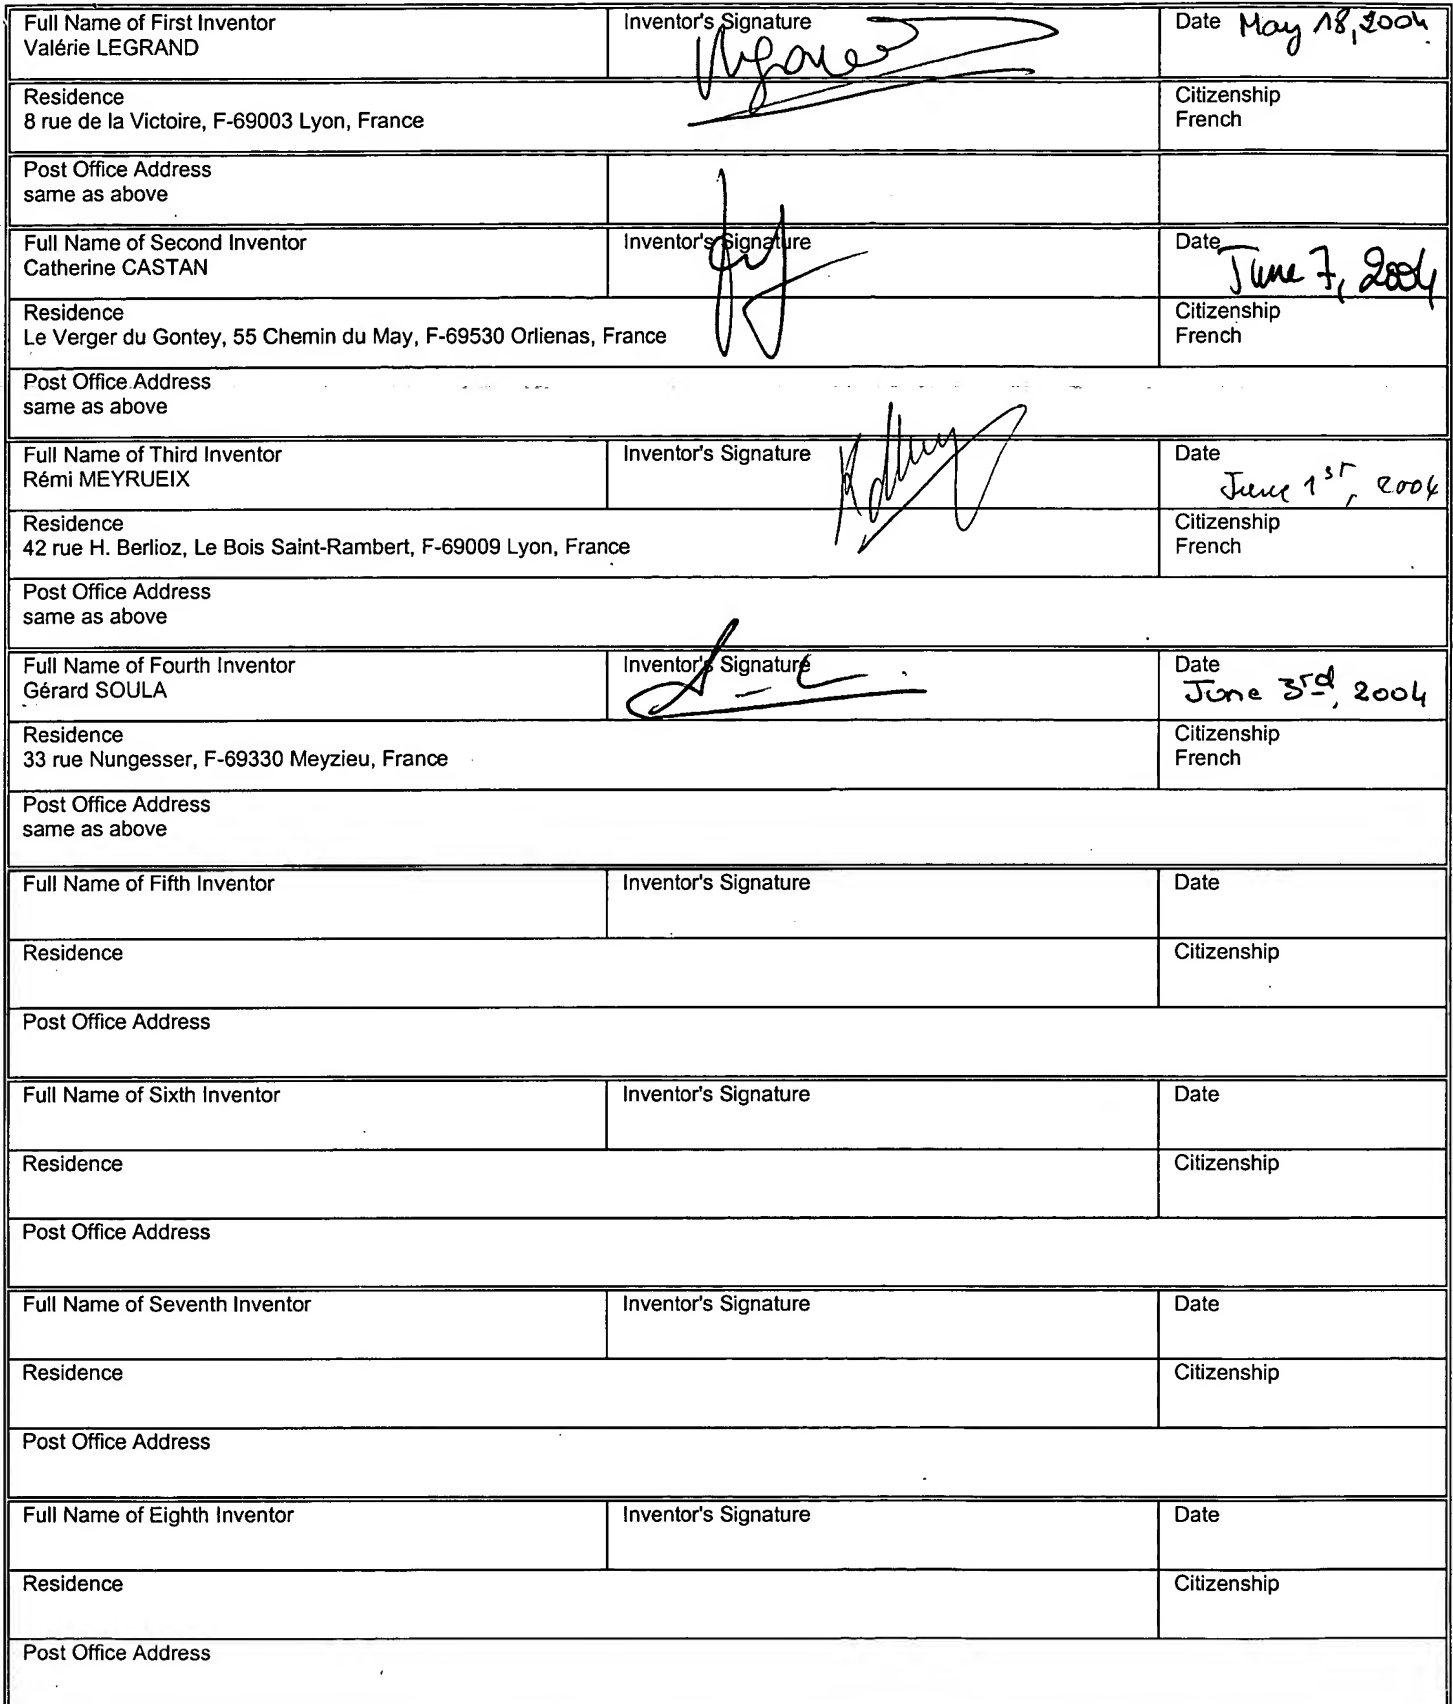 Full Name of First Inventor
Valérie LEGRAND
Inventor's Signature
Date May 18, 2004
Residence
8 rue de la Victoire, F-69003 Lyon, France
Citizenship
French
Post Office Address
same as above
Full Name of Second Inventor
Catherine CASTAN
Inventor's Signature
Date
June 7, 2004
Residence
Le Verger du Gontey, 55 Chemin du May, F-69530 Orlienas, France
Citizenship
French
Post Office Address
same as above
Full Name of Third Inventor
Rémi MEYRUEIX
Inventor's Signature
Date
June 1st, 2004
Residence
42 rue H. Berlioz, Le Bois Saint-Rambert, F-69009 Lyon, France
Citizenship
French
Post Office Address
same as above
Full Name of Fourth Inventor
Gérard SOULA
Inventor's Signature
Date
June 3rd, 2004
Residence
33 rue Nungesser, F-69330 Meyzieu, France
Citizenship
French
Post Office Address
same as above
Full Name of Fifth Inventor
Inventor's Signature
Date
Residence
Citizenship
Post Office Address
Full Name of Sixth Inventor
Inventor's Signature
Date
Residence
Citizenship
Post Office Address
Full Name of Seventh Inventor
Inventor's Signature
Date
Residence
Citizenship
Post Office Address
Full Name of Eighth Inventor
Inventor's Signature
Date
Residence
Citizenship
Post Office Address